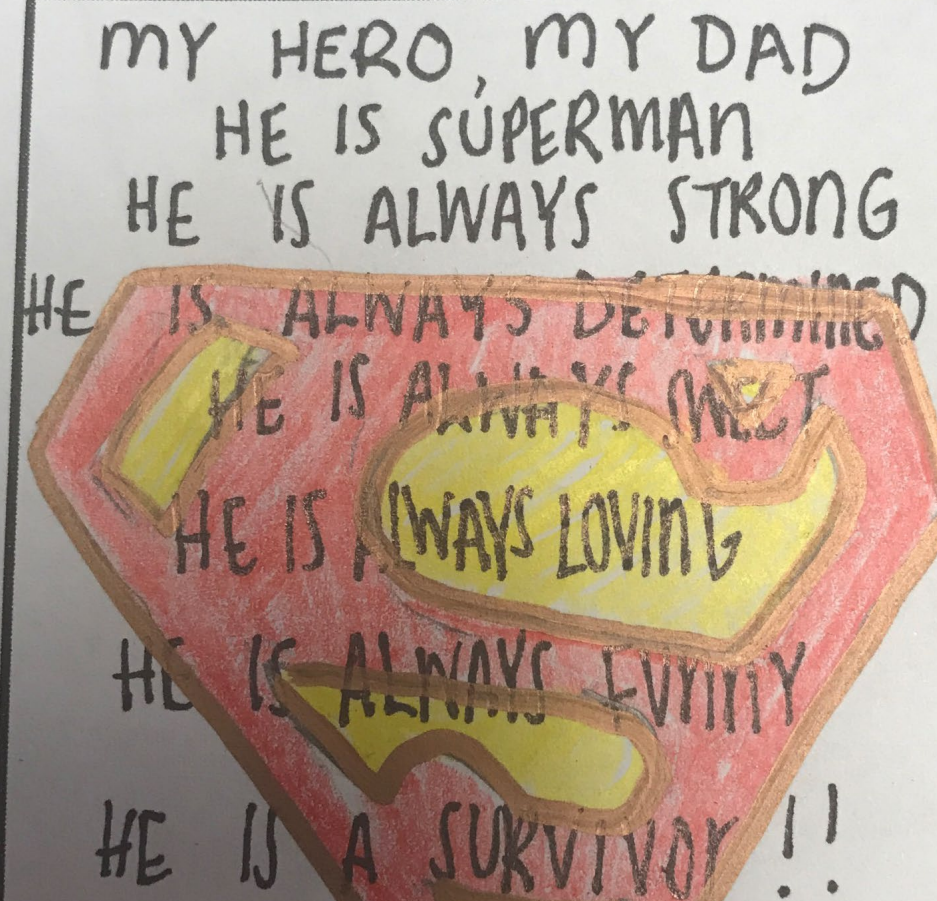 MY HERO, MY DAD
HE IS SUPERMAN
HE IS ALWAYS STRONG
HE IS ALWAYS DETERMINED
HE IS ALWAYS SWEET
HE IS ALWAYS LOVING
HE IS ALWAYS FUNNY
HE IS A SURVIVOR!!